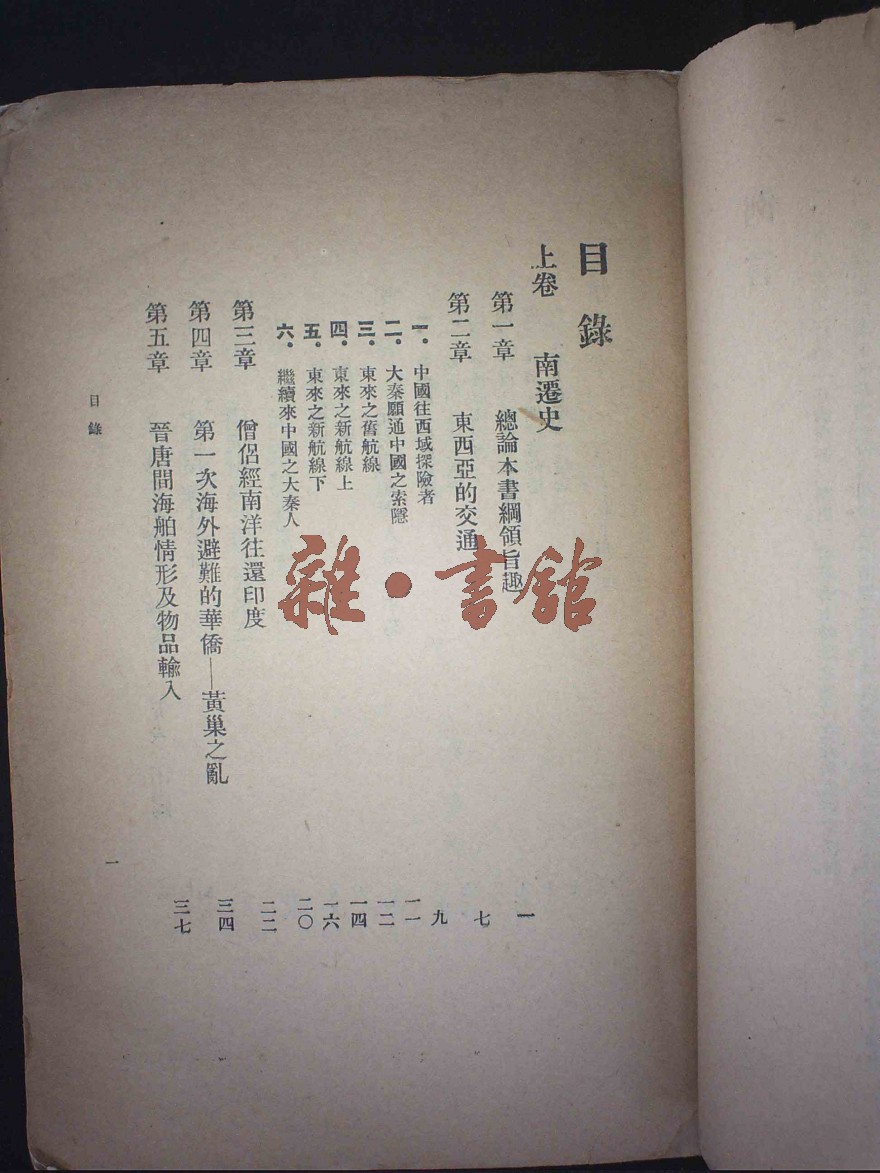 目錄
上卷 南遷史
第一章 總論本書綱領旨趣 一
第二章 東西亞的交通 七
一．中國往西域探險者 九
二．大秦願通中國之索隱 一一
三．東來之舊航線 一二
四．東來之新航線上 一四
五．東來之新航線下 一六
六．繼續來中國之大秦人 二〇
第三章 僧侶經南洋往還印度 二二
第四章 第一次海外避難的華僑—黃巢之亂 三四
第五章 晉唐間海舶情形及物品輸入 三七
目錄
一
雜·書館